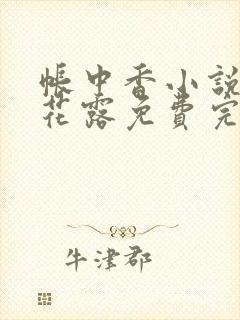 帳中香小說
花露免費完
牛津郡